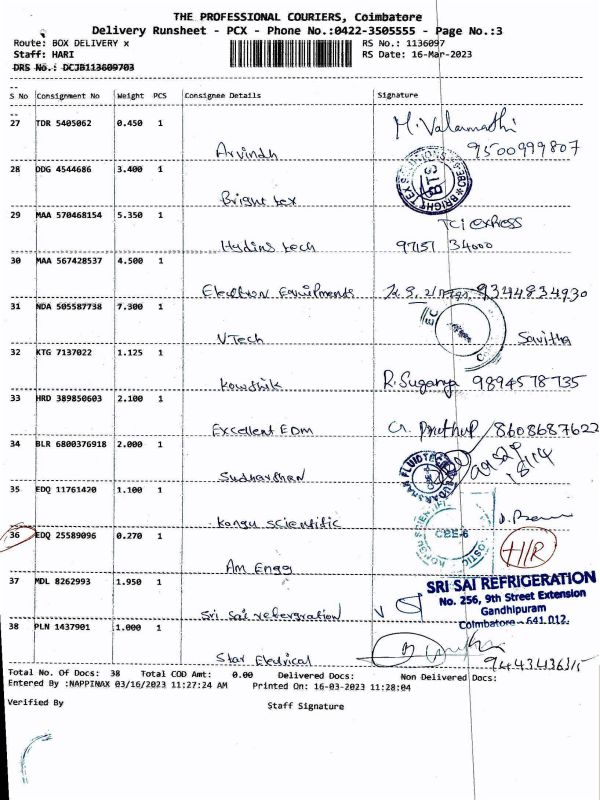 THE PROFESSIONAL COURIERS, Coimbatore
Delivery Runsheet - PCX - Phone No.:0422-3505555 - Page No.:3
Route: BOX DELIVERY x RS No.: 1136097
Staff: HARI RS Date: 16-Mar-2023
DRS No.: DCJB113609703
S No Consignment No Weight PCS Consignee Details Signature
27 TDR 5405062 0.450 1 M. Valarmathi
Arvindh 9500999807
28 DDG 4544686 3.400 1
Bright tex BRIGHT TEX BTS
29 MAA 570468154 5.350 1 TCI express
Hydins tech 97151 34000
30 MAA 567428537 4.500 1
Electron Equipments 9344834930
31 NDA 505587738 7.300 1
VTech Savitha
32 KTG 7137022 1.125 1
Kowshik R. Suganya 9894578735
33 HRD 389850603 2.100 1
Excellent EDM 8608687622
34 BLR 6800376918 2.000 1
Sudharshan
35 EDQ 11761420 1.100 1
Kongu Scientific
36 EDQ 25589096 0.270 1 CBE-6 H/R
Am Engg
37 MDL 8262993 1.950 1 SRI SAI REFRIGERATION
No. 256, 9th Street Extension
Gandhipuram
Sri Sai rebergration Coimbatore - 641 012.
38 PLN 1437901 1.000 1
Star Electrical
Total No. Of Docs: 38 Total COD Amt: 0.00 Delivered Docs: Non Delivered Docs:
Entered By :NAPPINAX 03/16/2023 11:27:24 AM Printed On: 16-03-2023 11:28:04
Verified By Staff Signature